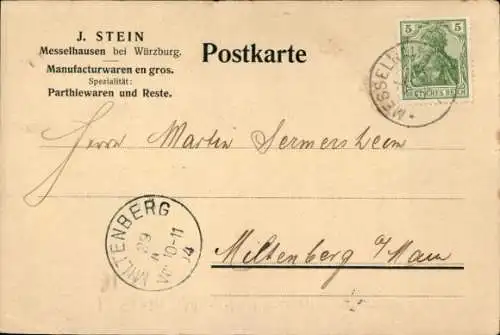 J. STEIN
Messelhausen bei Würzburg.
Manufacturwaren en gros.
Spezialität:
Parthiewaren und Reste.
Postkarte
5 5
DEUTSCHES REICH
Herrn Martin Sermersheim
Miltenberg a/Main
MILTENBERG
10-11